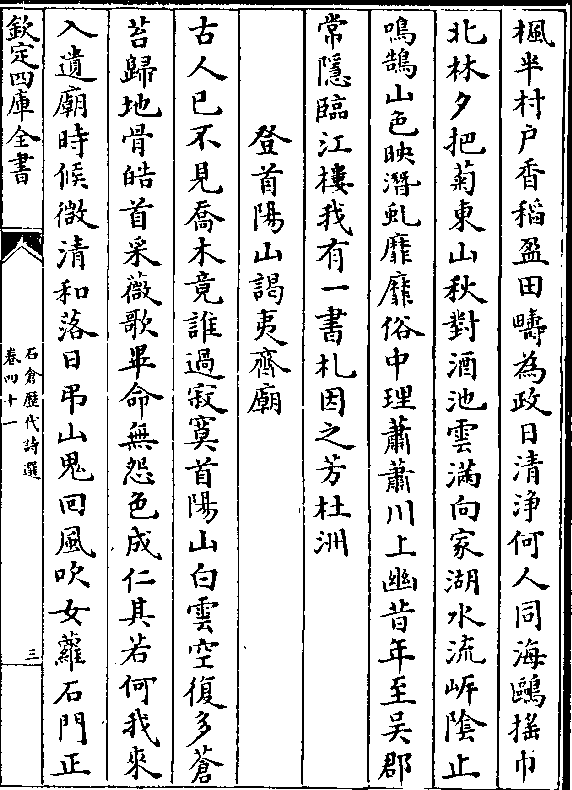 楓半村戶香稻盈田疇為政日清淨何人同海鷗搖巾
北林夕把菊東山秋對酒池雲滿向家湖水流岍陰止
鳴鵠山色映潛虬靡靡俗中理蕭蕭川上幽昔年至吳郡
常隱臨江樓我有一書札因之芳杜洲
登首陽山謁夷齊廟
古人已不見喬木竟誰過寂寞首陽山白雲空復多蒼
苔歸地骨皓首采薇歌畢命無怨色成仁其若何我來
入遺廟時候微清和落日弔山鬼回風吹女蘿石門正
欽定四庫全書
石倉歷代詩選
卷四十一
三